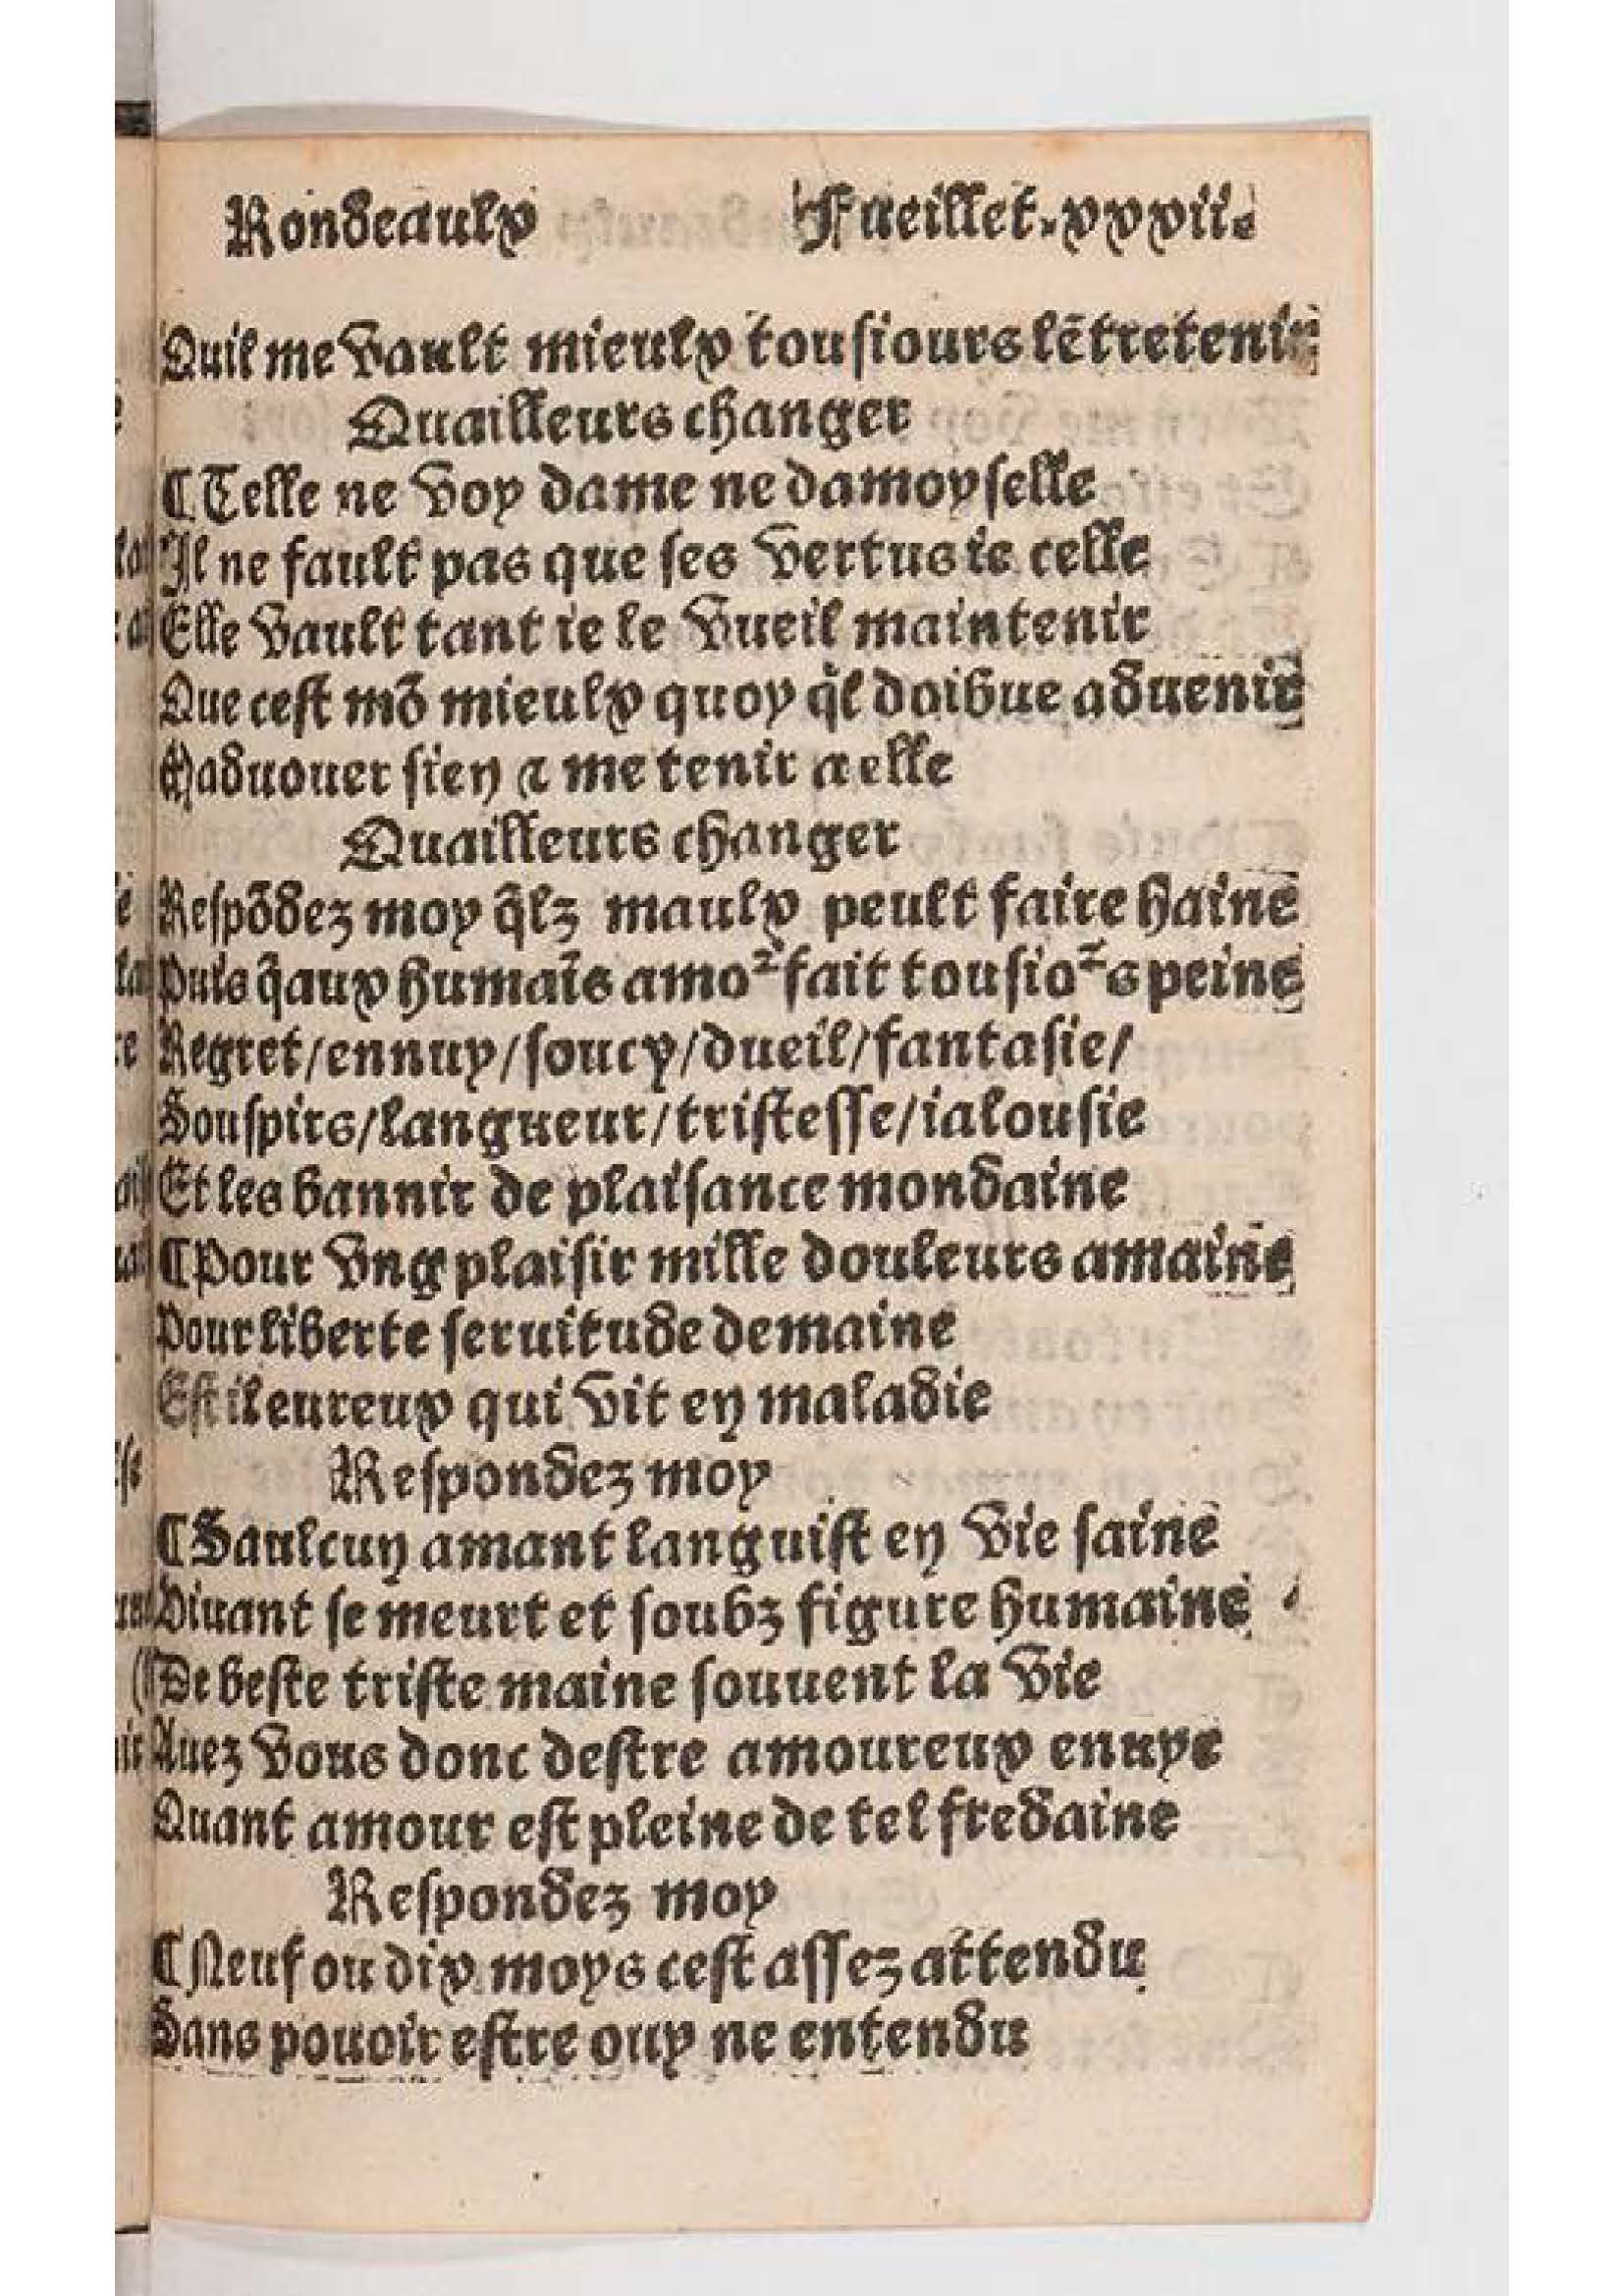 Rondeaulx Fueillet.xxxii.
Quil me vault mieulx tousiours lētretenir
Quailleurs changer
¶ Telle ne voy dame ne damoyselle
Il ne fault pas que ses vertus ie celle
Elle vault tant ie le vueil maintenir
Que cest mō mieulx quoy q̇l doibue aduenir
Maduouer sien ⁊ me tenir a elle
Quailleurs changer
Respōdez moy q̄lz maulx peult faire haine
Puis q̄aux humaīs amoꝰ fait tousioꝰs peine
Regret/ennuy/soucy/dueil/fantasie/
Souspirs/langueur/tristesse/ialousie
Et les bannir de plaisance mondaine
¶ Pour vng plaisir mille douleurs amaine
Pour liberte seruitude demaine
Est il eureux qui vit en maladie
Respondez moy
¶ Saulcun amant languist en vie saine
Viuant se meurt et soubz figure humaine
De beste triste maine souuent la vie
Auez vous donc destre amoureux enuye
Quant amour est pleine de tel fredaine
Respondez moy
¶ Neuf ou dix moys cest assez attendu
Sans pouoir estre ouy ne entendu